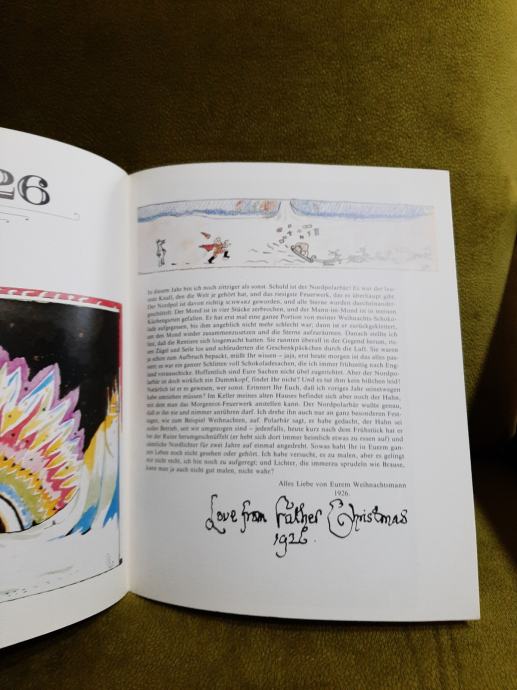 26
In diesem Jahr bin ich noch zittriger als sonst. Schuld ist der Nordpolarbär! Es war der lau-
teste Knall, den die Welt je gehört hat, und das riesigste Feuerwerk, das es überhaupt gibt.
Der Nordpol ist davon richtig SCHWARZ geworden, und alle Sterne wurden durcheinander-
geschüttelt. Der Mond ist in vier Stücke zerbrochen, und der Mann-im-Mond ist in meinen
Küchengarten gefallen. Er hat erst mal eine ganze Portion von meiner Weihnachts-Schoko-
lade aufgegessen, bis ihm angeblich nicht mehr schlecht war; dann ist er zurückgeklettert,
um den Mond wieder zusammenzusetzen und die Sterne aufzuräumen. Danach stellte ich
fest, daß die Rentiere sich losgemacht hatten. Sie rannten überall in der Gegend herum, ris-
sen Zügel und Seile los und schleuderten die Geschenkpäckchen durch die Luft. Sie waren
ja schon zum Aufbruch bepackt, müßt Ihr wissen – jaja, erst heute morgen ist das alles pas-
siert; es war ein ganzer Schlitten voll Schokoladesachen, die ich immer frühzeitig nach Eng-
land vorausschicke. Hoffentlich sind Eure Sachen nicht übel zugerichtet. Aber der Nordpo-
larbär ist doch wirklich ein Dummkopf, findet Ihr nicht? Und es tut ihm kein bißchen leid!
Natürlich ist er es gewesen, wer sonst. Erinnert Ihr Euch, daß ich voriges Jahr seinetwegen
habe umziehen müssen? Im Keller meines alten Hauses befindet sich aber noch der Hahn,
mit dem man das Morgenrot-Feuerwerk anstellen kann. Der Nordpolarbär wußte genau,
daß er ihn nie und nimmer anrühren darf. Ich drehe ihn auch nur an ganz besonderen Fest-
tagen, wie zum Beispiel Weihnachten, auf. Polarbär sagt, er habe gedacht, der Hahn sei
außer Betrieb, seit wir umgezogen sind – jedenfalls, heute kurz nach dem Frühstück hat er
bei der Ruine herumgeschnüffelt (er hebt sich dort immer heimlich etwas zu essen auf) und
sämtliche Nordlichter für zwei Jahre auf einmal angedreht. Sowas habt Ihr in Eurem gan-
zen Leben noch nicht gesehen oder gehört. Ich habe versucht, es zu malen, aber es gelingt
mir nicht recht, ich bin noch zu aufgeregt; und Lichter, die immerzu sprudeln wie Brause,
kann man ja auch nicht gut malen, nicht wahr?
Alles Liebe von Eurem Weihnachtsmann
1926.
Love from Father Christmas
1926.